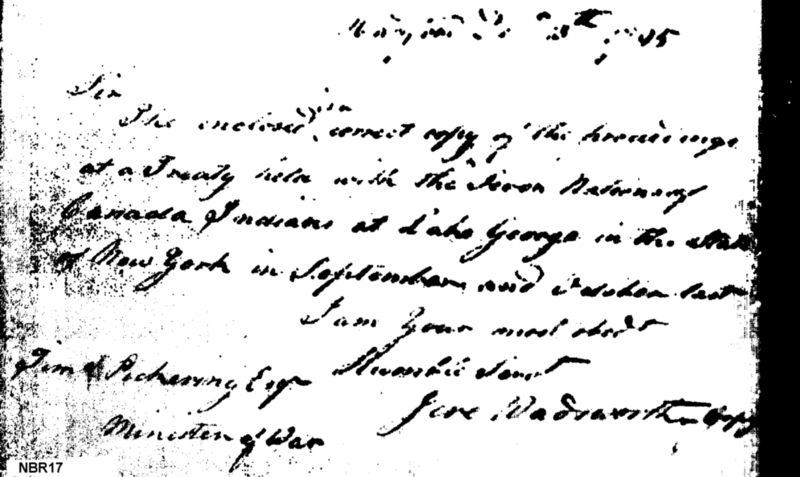 Sir
The enclosed is a correct copy of the proceedings
at a Treaty held with the Seven Nations of
Canada Indians at Lake George in the State
of New York in September and October last
I am Your most obedt
Humble Servt
Jere Wadsworth Copy
Timy Pickering Esqr
Minister of War
NBR17